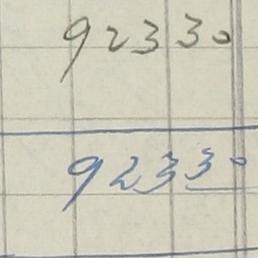 92330
92330